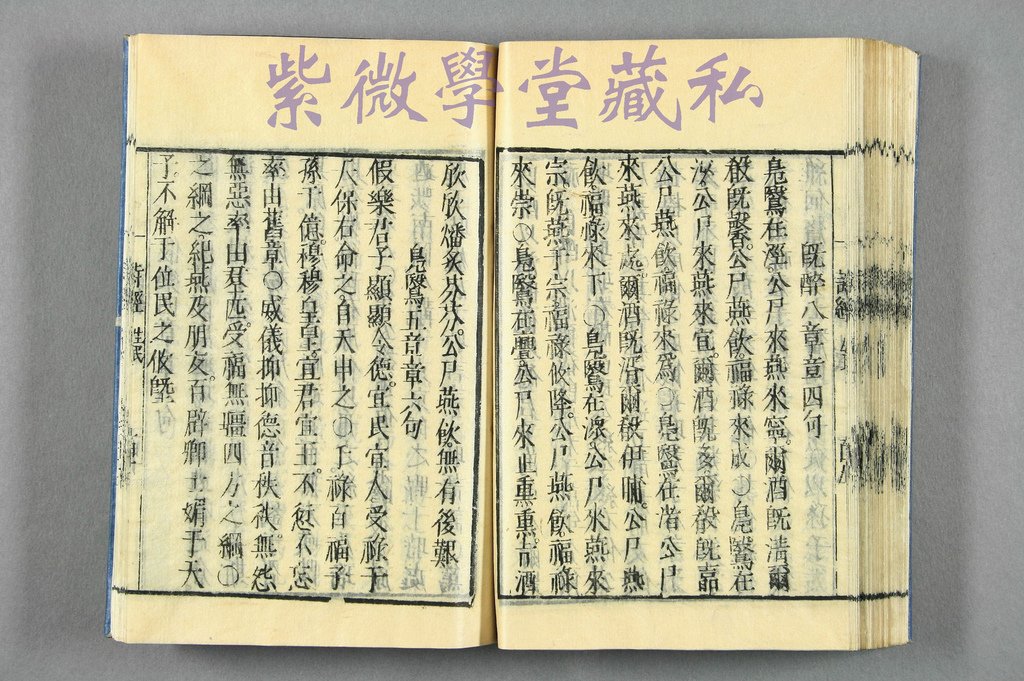 紫微學堂藏私
旣醉八章章四句
鳧鷖在涇公尸來燕來寧。爾酒旣淸爾
殽旣馨。公尸燕飲福祿來成○鳧鷖在
沙公尸來燕來宜。爾酒旣多爾殽旣嘉
公尸燕飲福祿來爲○鳧鷖在渚公尸
來燕來處。爾酒旣湑爾殽伊脯。公尸燕
飲。福祿來下○鳧鷖在潀公尸來燕來
宗旣燕于宗福祿攸降。公尸燕飲。福祿
來崇○鳧鷖在亹公尸來止熏熏旨酒
欣欣燔炙芬芬。公尸燕飲。無有後艱
鳧鷖五章章六句
假樂君子顯顯令德。宜民宜人受祿于
天保右命之。自天申之○干祿百福子
孫千億。穆穆皇皇。宜君宜王。不愆不忘
率由舊章○威儀抑抑德音秩秩。無怨
無惡率由群匹。受福無疆四方之綱○
之綱之紀燕及朋友。百辟卿士媚于天
子。不解于位民之攸墍
詩經 生民